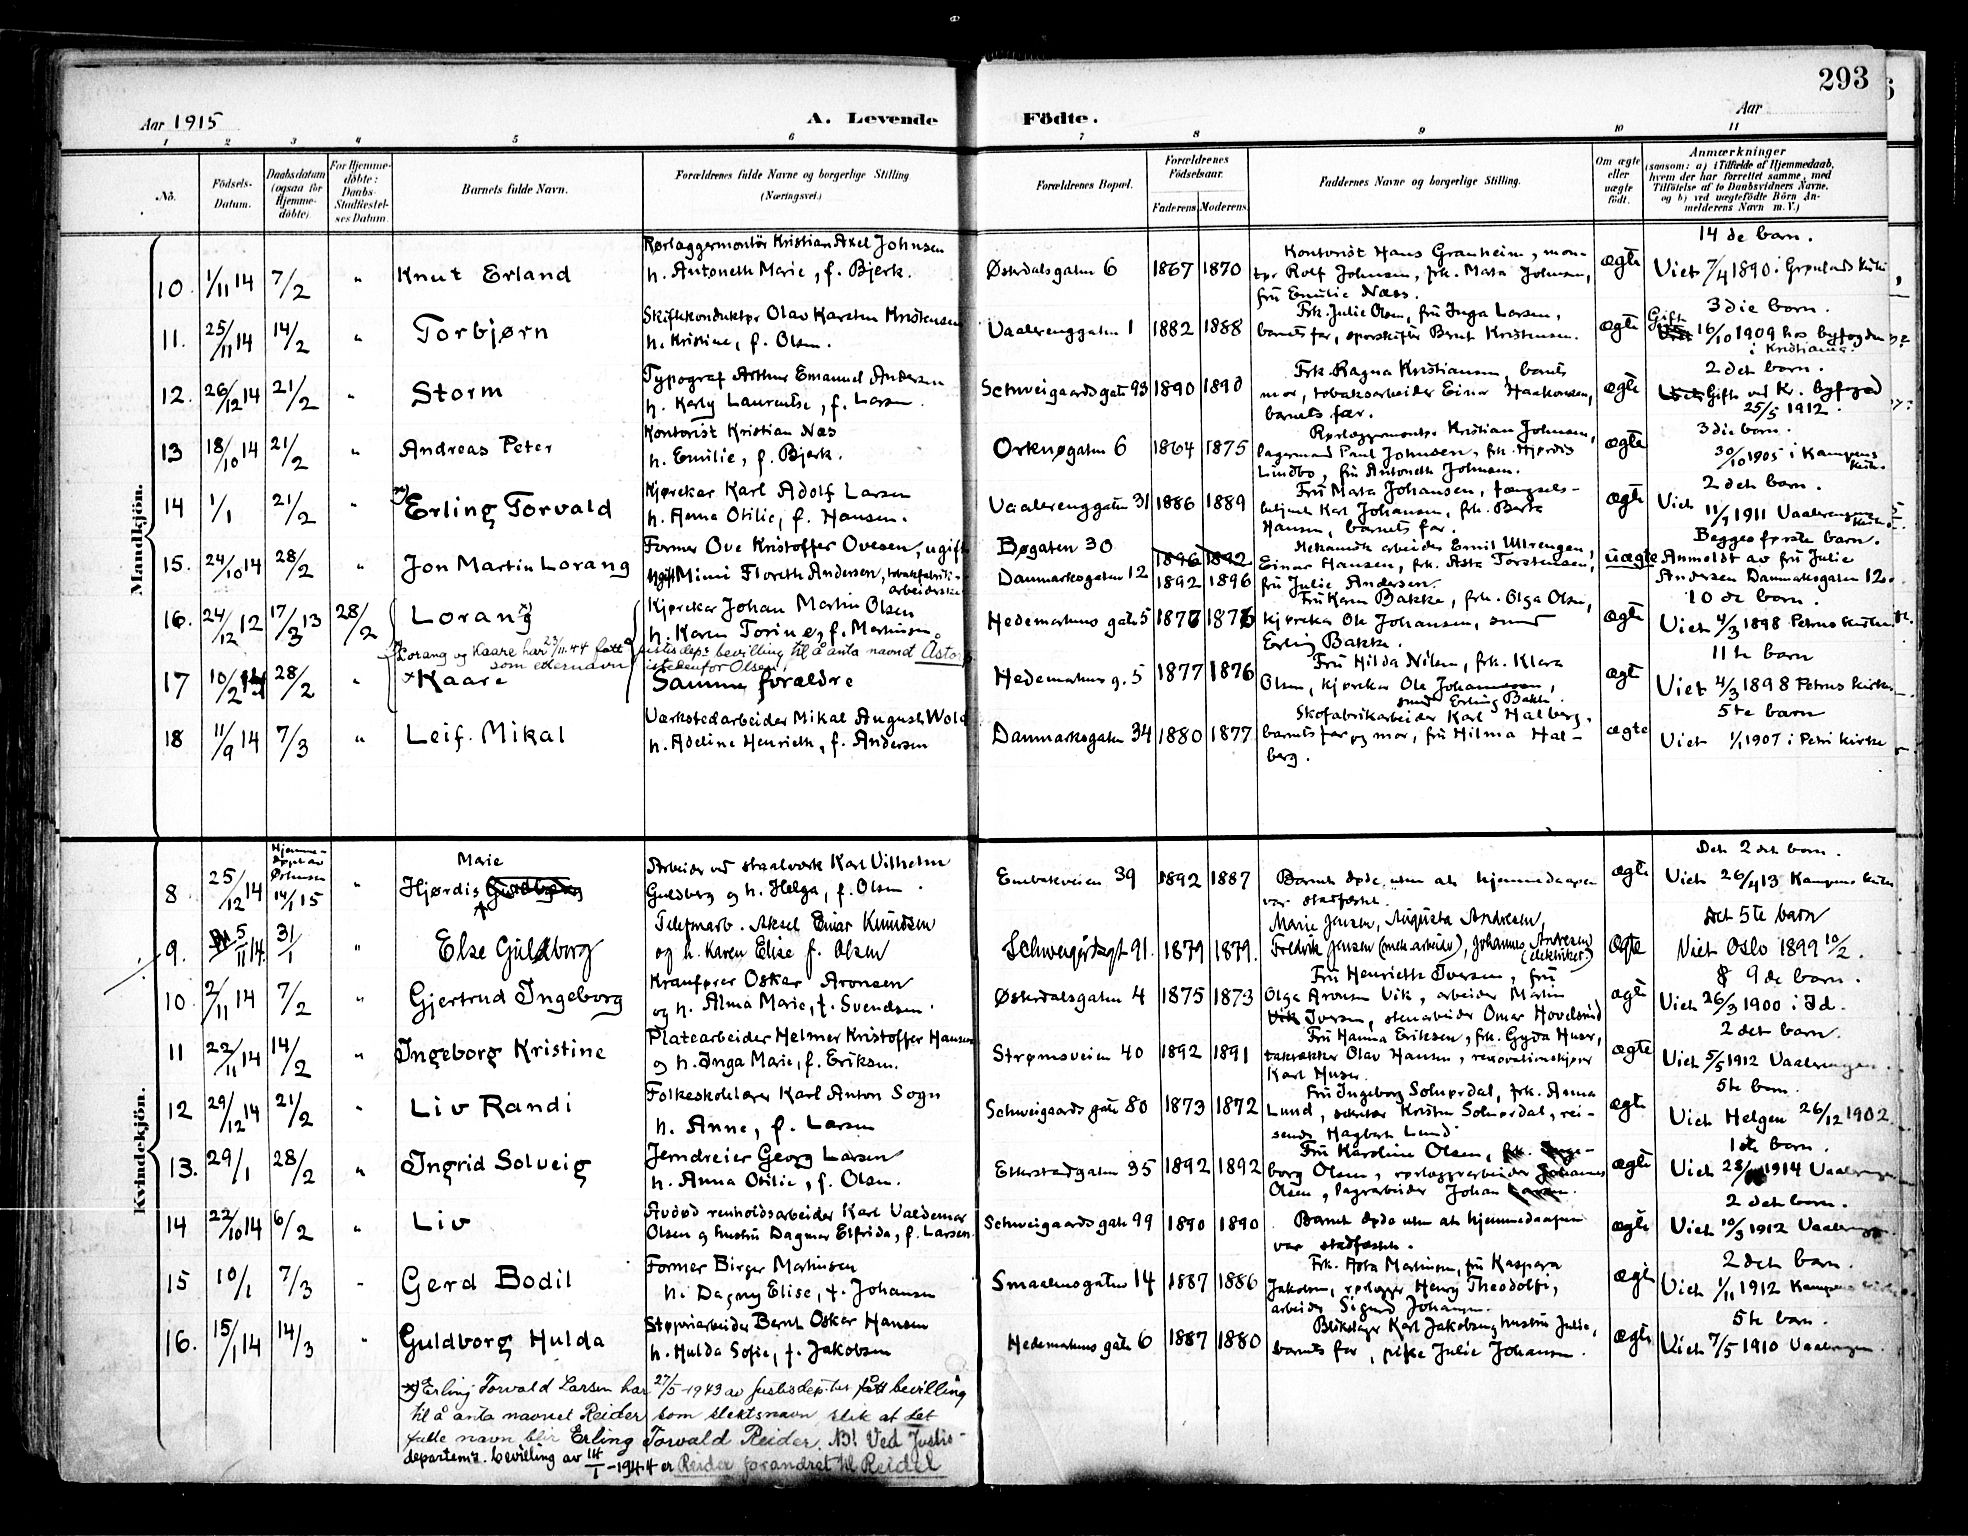 293
Aar 1915
A. Levende Födte.
Aar
1 2 3 4 5 6 7 8 9 10 11
No.
Födsels-Datum.
Daabsdatum (ogsaa for Hjemme-döbte)
For Hjemme-döbte: Daabs-Stadfæstel-ses Datum.
Barnets fulde Navn.
Forældrenes fulde Navne og borgerlige Stilling (Næringsvei.)
Forældrenes Bopæl.
Forældrenes Födselsaar.
Faderens Moderens
Faddernes Navne og borgerlige Stilling.
Om ægte eller uægte födt.
Anmærkninger
(saasom: a) i Tilfælde af Hjemmedaab, hvem der har forrettet samme, med Tilföielse af to Daabsvidners Navne, og b) ved uægtefödte Börn An-melderens Navn m. V.)
Mandkjön.
10. 1/11 14 7/2 " Knut Erland
Rørlæggermontör Kristian Axel Johnsen
h. Antoneth Marie, f. Bjerk.
Østerdalsgaten 6 1867 1870
Kontorist Hans Granheim, mon-
tør Rolf Johnsen, frk. Marta Johnsen,
frü Emilie Næss.
ægte
14 de barn.
Viet 7/4 1890 i Grønlands kirke
11. 25/11 14 14/2 " Torbjørn
Skiftekonduktør Olav Karsten Kristensen
h. Kristine, f. Olsen.
Vaalerenggaten 1 1882 1888
Frk. Julie Olsen, frü Inga Larsen,
barnets far, sporskifter Bernt Kristensen.
ægte
3 die barn.
Gift 16/10 1909 hos byfogden
i Kristiania.
12. 26/12 14 21/2 " Storm
Typograf Arthur Emanuel Andersen
h. Karly Laurentse, f. Larsen
Schweigaardsgate 93 1890 1890
Frk. Ragna Kristiansen, barnets
mor, tobaksarbeider Einar Haakonsen,
barnets far.
ægte
2 det barn.
Gift ved Kr. byfoged
25/5 1912.
13 18/10 14 21/2 " Andreas Peter
Kontorist Kristian Næs
h. Emilie, f. Bjerk.
Orknøgaten 6 1864 1875
Rørlæggermontør Kristian Johnsen,
lagermand Paul Johnsen, frk. Hjørdis
Lindbo, frü Antoneth Johnsen.
ægte
3 die barn.
30/10 1905 i Kampens kirke.
14 1/1 21/2 " x) Erling Torvald
Kjørekar Karl Adolf Larsen
h. Anna Otilie, f. Hansen.
Vaalerenggaten 31 1886 1889
Frü Marta Johansen, fængsels-
betjent Karl Johansen, frk. Berta
Hansen, barnets far.
ægte
2 det barn.
Viet 11/9 1911 Vaalerengens kirke
15. 24/10 14 28/2 " Jon Martin Lorang
Former Ove Kristoffer Ovesen, ugift
ugift Mimi Floreth Andersen, tobakfabrik-
arbeiderske
Bøgaten 30
Danmarksgaten 12
1896 1892
1892 1896
Mekanisk arbeider Emil Ulvengen,
Einar Hansen, frk. Asta Torstensen,
frü Julie Andersen.
uægte
Begges første barn.
Anmeldt av frü Julie
Andersen Danmarksgaten 12.
16. 24/12 12 17/3 13 28/2 Lorang x)
Kjørekar Johan Martin Olsen
h. Karen Torine, f. Martinsen.
Hedemarkens gate 5 1877 1876
Frü Karen Bakke, frk. Olga Olsen,
kjørekar Ole Johansen, smed
Erling Bakke.
ægte
10 de barn.
Viet 4/3 1898 Petrus kirken
x) Lorang og Kaare har 23/11.44 fått justisdeps bevilling til å anta navnet Astor
som etternavn istedenfor Olsen.
17 10/2 14 28/2 " x Kaare
Samme forældre
Hedemarkens g. 5 1877 1876
Frü Hilda Nilsen, frk. Klara
Olsen, kjørekar Ole Johannessen,
smed Erling Bakke.
ægt
11 te barn
Viet 4/3 1898 Petrus kirke
18 11/9 14 7/3 " Leif. Mikal
Værkstedarbeider Mikal August Wold
h. Adeline Henriette, f. Andersen
Danmarksgaten 34 1880 1877
Skofabrikarbeider Karl Halberg,
barnets far og mor, frü Hilma Hal-
berg.
ægte
5 te barn
Viet 1/1 1907 i Petri kirke
Kvindekjön.
8 25/12 14 Hjemme-døpt av 14/1 15 " Hjørdis Marie
Arbeider ved staalverk Karl Vilhelm
Guldberg og h. Helga, f. Olsen.
Enebakveien 39 1892 1887
Barnet døde uten at hjemmedaapen
var stadfæstet.
ægte
Det 2 det barn.
Viet 26/4 13 Kampens kirke
9. 5/11 14. 31/1 " Else Guldborg
Telefonarb. Aksel Einar Knudsen
og h. Karen Elise f. Olsen
Schweigårdsgt 91. 1879 1879.
Marie Jensen, Augusta Andresen,
Fredrik Jensen (mek arbeider), Johannes Andresen (elektriker)
ægte
Det 5te barn
Viet Oslo 1899 10/2.
10. 2/11 14 7/2 " Gjertrud Ingeborg
Kranfører Oskar Aronsen
og h. Alma Marie, f. Svendsen.
Østerdalsgaten 4 1875 1873
Frü Henriette Iversen, frü
Olga Aronsen Vik, arbeider Martin
Iversen, stenarbeider Omar Hovelsrud
ægte
9 de barn.
Viet 26/3 1900 i Id.
11 22/11 14 14/2 " Ingeborg Kristine
Platearbeider Helmer Kristoffer Hansen
og h. Inga Marie, f. Eriksen.
Strømsveien 40 1892 1891
Frü Hanna Eriksen, frk. Gyda Huser,
taktækker Olav Hansen, renovationskjører
Karl Huser.
ægte
2 det barn.
Viet 5/5 1912 Vaalerengen.
12 29/12 14 21/2 " Liv Randi
Folkeskolelærer Karl Anton Sogn
h. Anne, f. Larsen
Schweigaards gate 80 1873 1872
Frü Ingeborg Solnørdal, frk. Anna
Lund, sekretær Kristen Solnørdal, rei-
sende Hagbart Lund
ægte
5 te barn.
Viet Helgen 26/12 1902.
13. 29/1 28/2 " Ingrid Solveig
Jerndreier Georg Larsen
h. Anna Otilie, f. Olsen.
Etterstadgaten 35 1892 1892
Frü Karoline Olsen, frk. Inge-
borg Olsen, rørlæggerarbeider Johannes
Olsen, lagerarbeider Johan
ægte
1ste barn.
Viet 1914 Vaalerengen
14 22/10 14 6/2 " Liv
Avdød renholdsarbeider Karl Valdemar
Olsen og hustrü Dagmar Elfrida, f. Larsen.
Schweigaardsgate 99 1890 1890
Barnet døde uten at hjemmedaapen
var stadfæstet.
ægte
2 det barn.
Viet 10/3 1912 Vaalerengen
15 10/1 7/3 - Gerd Bodil
Former Birger Martinsen
h. Dagny Elise, f. Johansen
Smaalensgaten 14 1887 1886
Frk. Asta Martinsen, frü Kaspara
Jakobsen, rørlægger Henry Theodolfi,
arbeider Sigurd Johansen.
ægte
2 det barn.
Viet 1/11 1912 Kampens kirke
16. 15/1 14 14/3 " Guldborg Hulda
Støperiarbeider Bernt Oskar Hansen
h. Hulda Sofie, f. Jakobsen
Hedemarkens gate 6 1887 1880
Blikslager Karl Jakobsen og hustrü Julie,
barnets far, pike Julie Johansen.
ægte
5 te barn.
Viet 7/5 1910 Vaalerengen.
x) Erling Torvald Larsen har 27/5-1943 av justisdep-tet fått bevilling
til å anta navnet Reider som slektsnavn slik at det
fulle navn blir Erling Torvald Reider. NB! Ved Justis-
departem.s. bevilling av 14/1-1944 er Reider forandret til Reidel